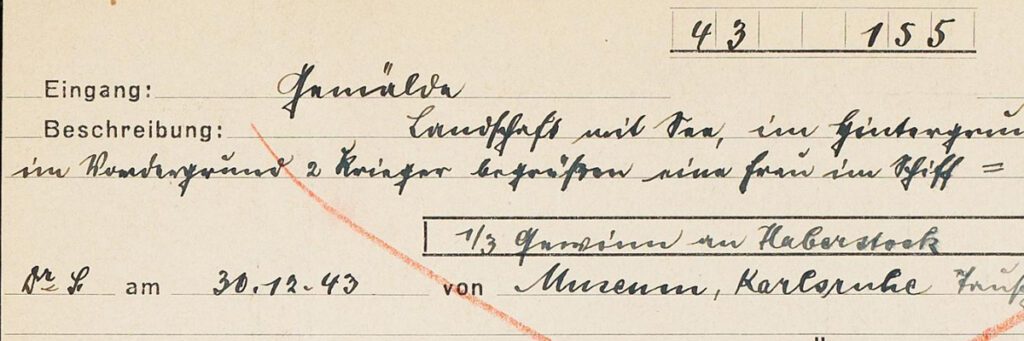 43 155
Eingang: Gemälde
Beschreibung: Landschaft mit See, im Hintergrun
im Vordergrund 2 Krieger begrüßen eine Frau im Schiff =
1/3 Gewinn an Haberstock
Dr. S. am 30.12.43 von Museum, Karlsruhe Tausch